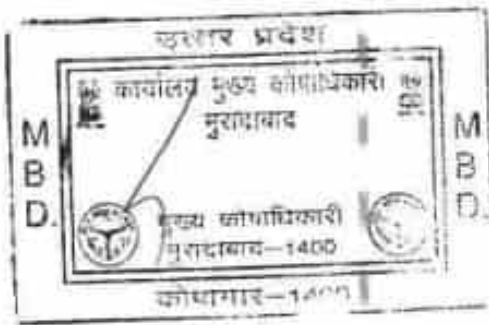 उत्तर प्रदेश
कार्यालय मुख्य कोषाधिकारी
मुरादाबाद
M B D.
M B D.
मुख्य कोषाधिकारी
मुरादाबाद–1400
कोषागार–1400